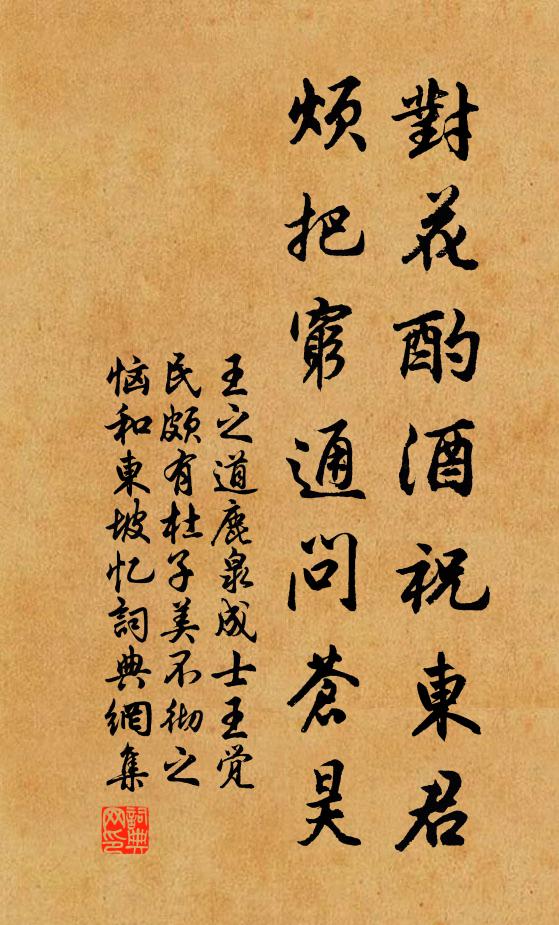 對花酌酒祝東君
煩把窮通問蒼昊
王之道鹿泉成士王觉
民頗有杜子美不彻之
恼和東坡忆詞典網集
詞典网印